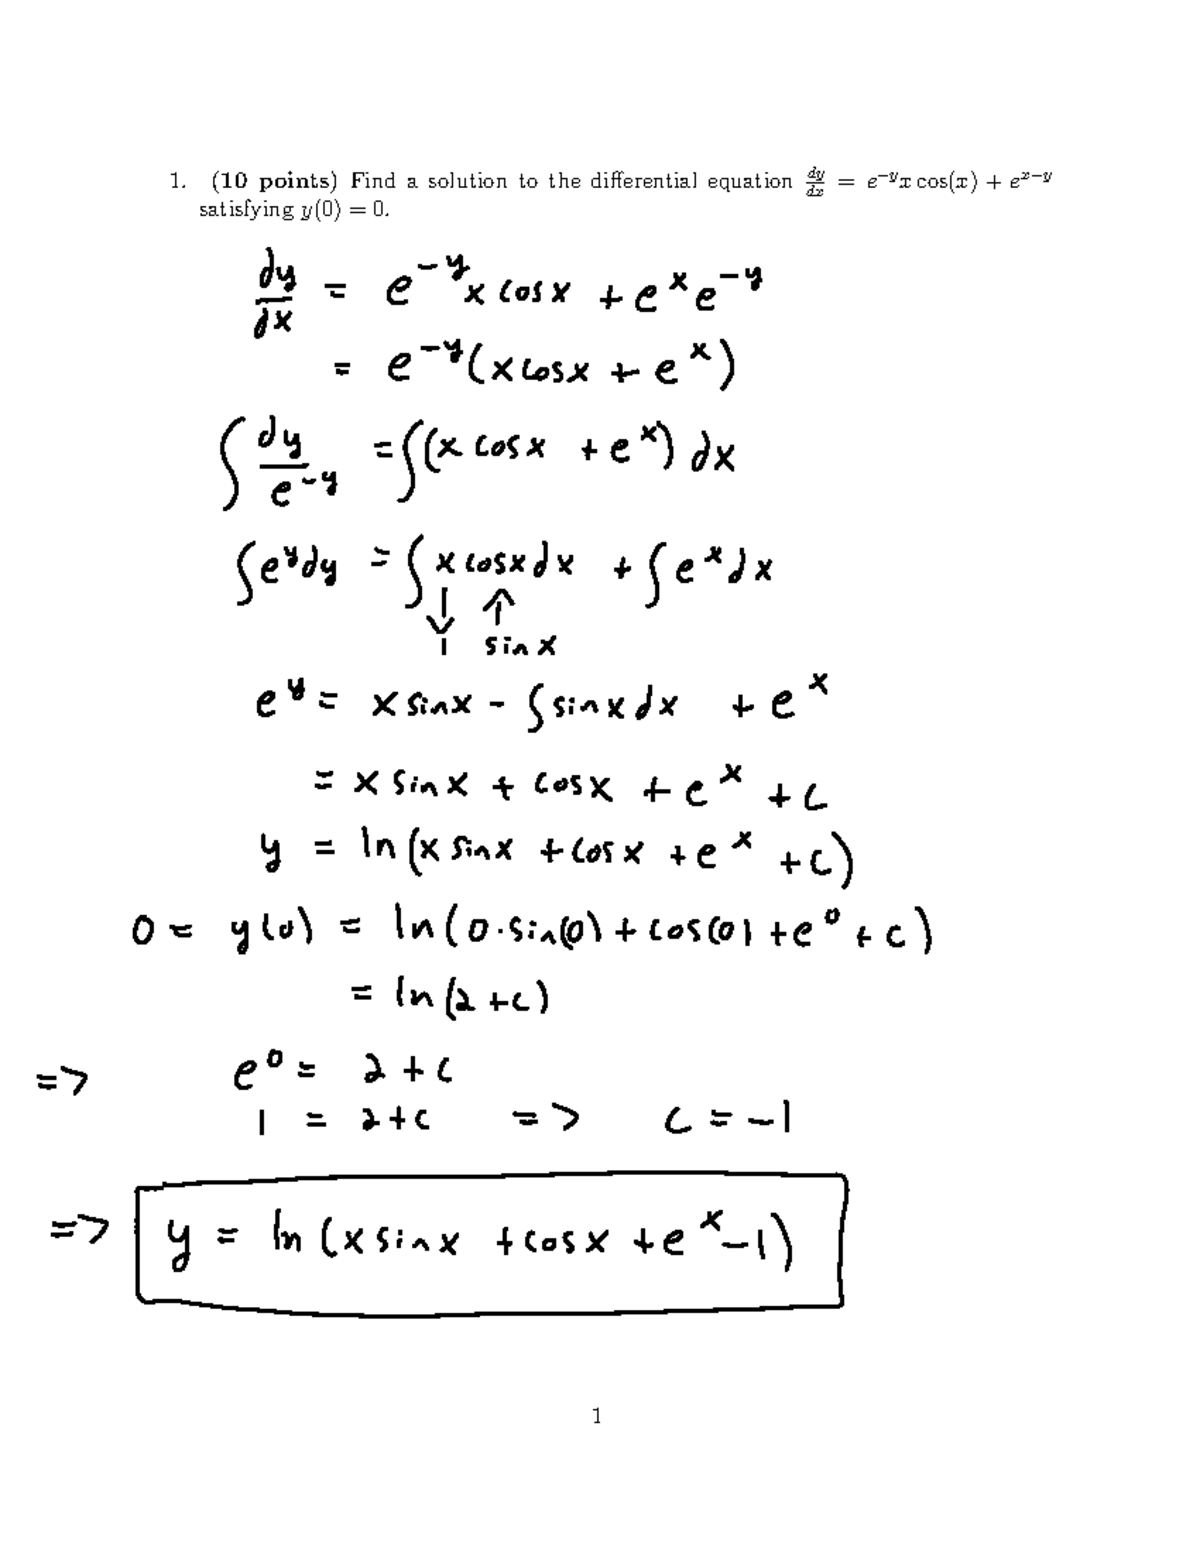 1. (10 points) Find a solution to the differential equation dy/dx = e^{-y}x cos(x) + e^{x-y}
satisfying y(0) = 0.
dy/dx = e^{-y}x cosx + e^x e^{-y}
= e^{-y}(x cosx + e^x)
∫ dy/e^{-y} = ∫(x cosx + e^x) dx
∫e^y dy = ∫ x cosx dx + ∫e^x dx
↓ ↑
1 sinx
e^y = x sinx - ∫sinx dx + e^x
= x sinx + cosx + e^x + c
y = ln(x sinx + cosx + e^x + c)
0 = y(0) = ln(0·sin(0) + cos(0) + e^0 + c)
= ln(2+c)
=> e^0 = 2+c
1 = 2+c => c = -1
=> y = ln(x sinx + cosx + e^x - 1)
1